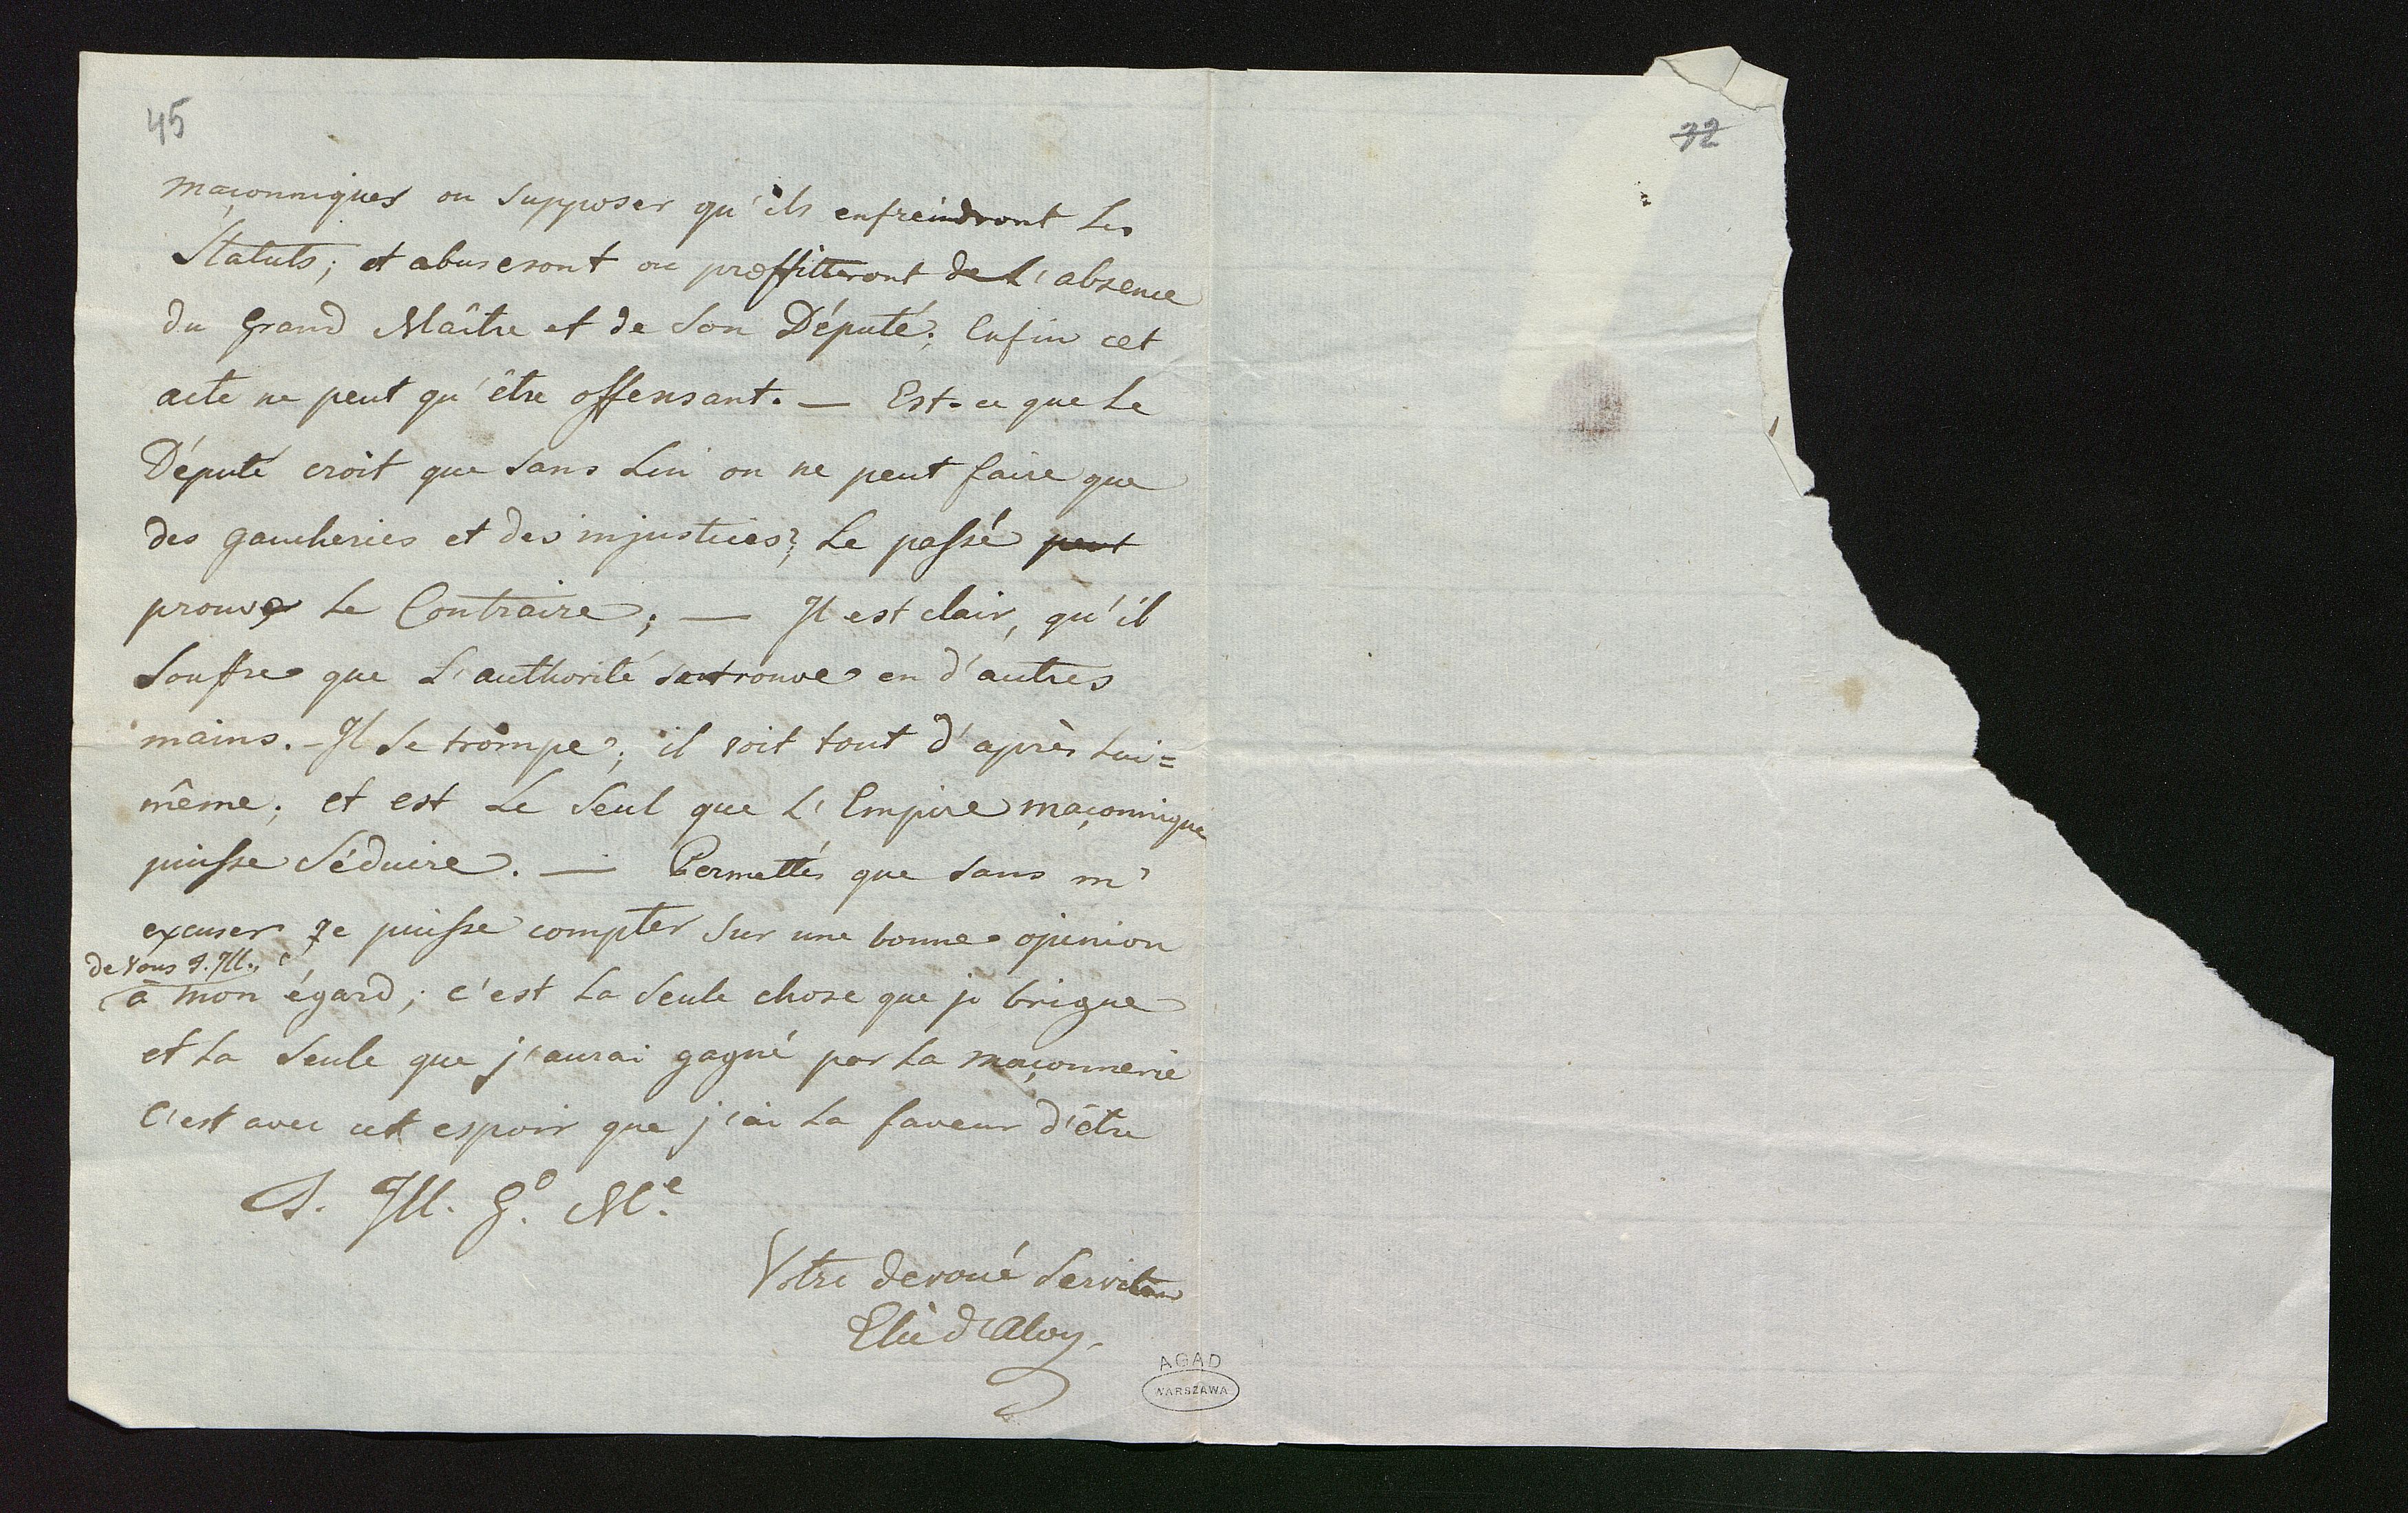 45
32
maçonniques ou supposer qu'ils enfreindront les
Statuts; et abuseront ou proffitteront de L'absence
du Grand Maître et de Son Député; Enfin cet
acte ne peut qu'être offensant. — Est-ce que Le
Député croit que sans Lui on ne peut faire que
des gaucheries et des injustices? Le passé peut
prouve Le Contraire; — Il est clair, qu'il
Souffre que L'authorité se trouve en d'autres
mains. - Il se trompe; il voit tout d'après Lui=
même; et est Le Seul que L'Empire maçonnique
puisse Séduire. — Permettés que sans m'
excuser Je puisse compter sur une bonne opinion
de Vous S. Ill.
à mon égard; c'est La Seule chose que je brigue
et La Seule que j'aurai gagné par La maçonnerie
C'est avec cet espoir que j'ai La faveur d'être
S. Ill. G.d M.e
Votre devoué Serviteur
Elie d'Aloy.
AGAD
WARSZAWA